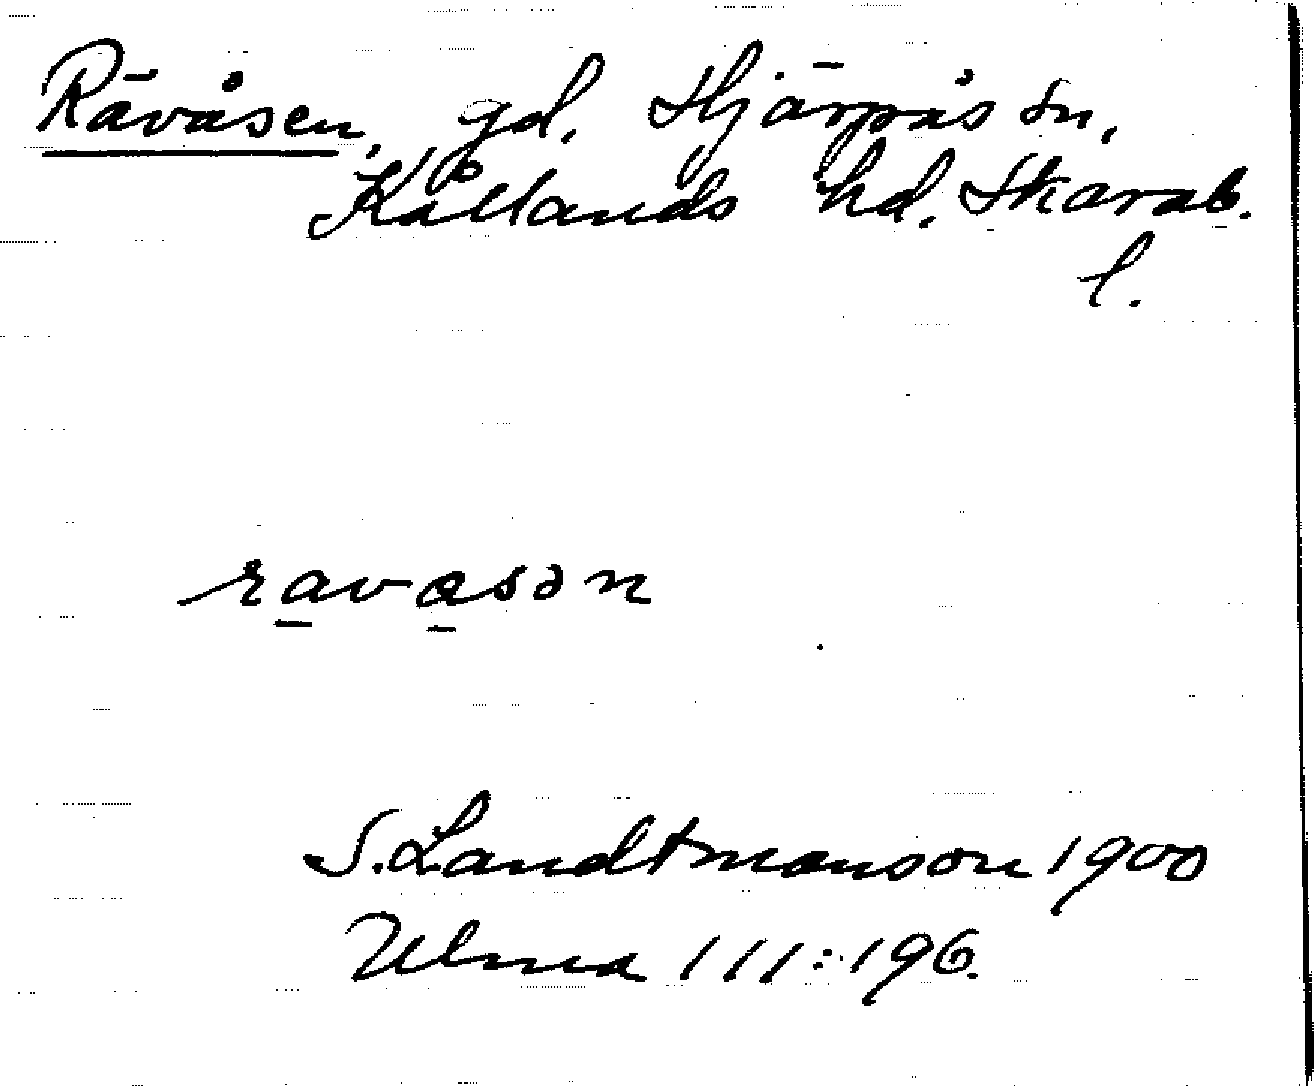 Rāvåsen, gd. Hjārpås sn,
Kållands hd. Skarab.
l.
ravasən
S. Landtmanson 1900
Ulma 111:196.